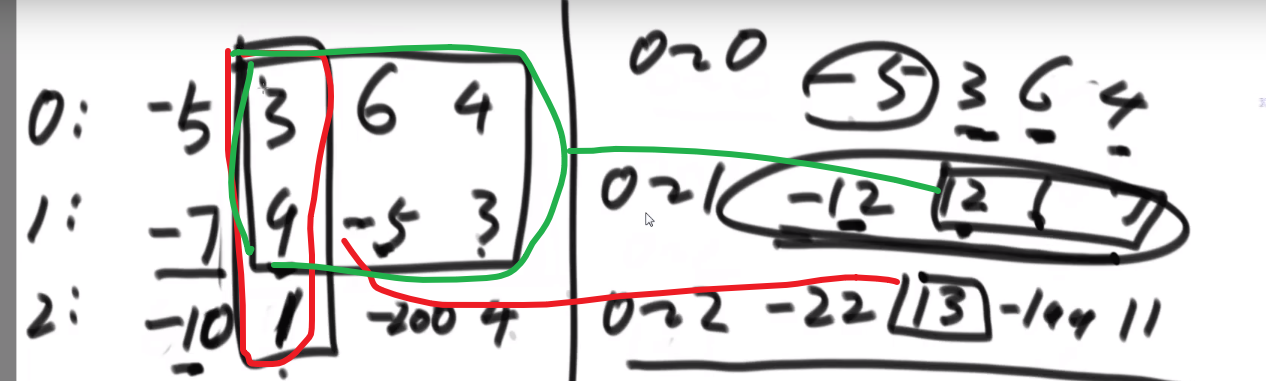 0: -5 3 6 4
1: -7 9 -5 3
2: -10 1 -200 4
0~0 -5 3 6 4
0~1 -12 12 1 7
0~2 -22 13 -199 11